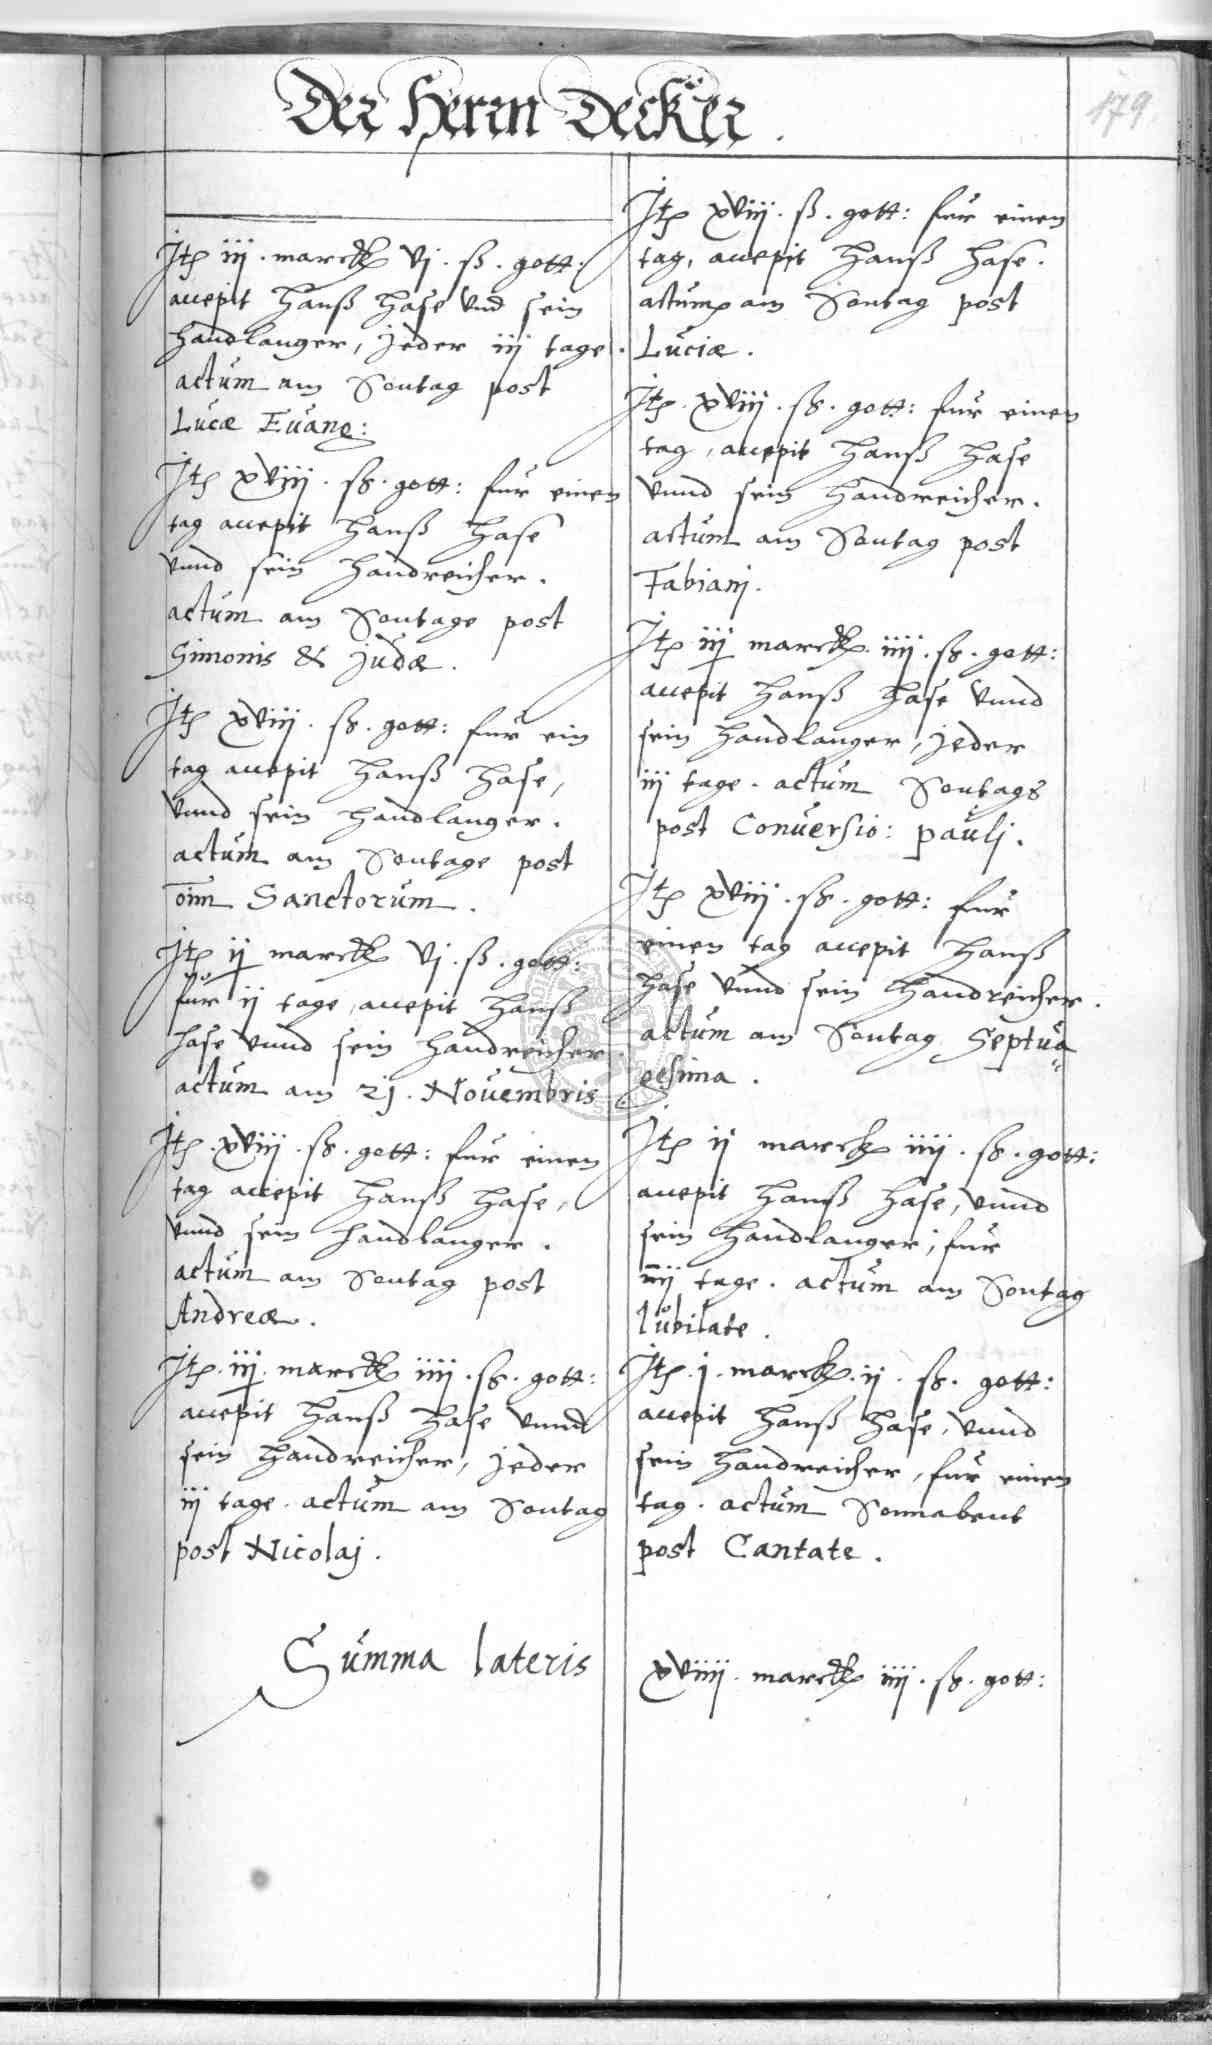 Der Herrn Decker.
179.
Itp iij. marck vj. ß. gott:
accepit Hanß Hase vnd sein
handlanger, jeder iij tage.
actum am Sontag post
Lucæ Euang:
Itp xviij. ß. gott: fur einen
tag accepit Hanß Hase
vnnd sein Handreicher.
actum am Sontage post
Simonis & Judæ.
Itp xviij. ß. gott: fur ein
tag accepit Hanß Hase,
vnnd sein Handlanger.
actum am Sontage post
oim Sanctorum.
Itp ij marck vj. ß. gott:
fur ij tage, accepit Hanß
Hase vnnd sein Handreicher.
actum am 21. Nouembris
Itp. xviij. ß. gott: fur einen
tag accepit Hanß Hase,
vnnd sein handlanger.
actum am Sontag post
Andreæ.
Itp. iij. marck iiij. ß. gott:
accepit Hanß Hase vnnd
sein Handreicher, jeder
iij tage. actum am Sontag
post Nicolaj.
Itp xviij. ß. gott: fur einen
tag, accepit Hanß Hase.
actum am Sontag post
Luciæ.
Itp. xviij. ß. gott: fur einen
tag, accepit Hanß Hase
vnnd sein Handreicher.
actum am Sontag post
Fabianj.
Itp iij marck iiij. ß. gott:
accepit Hanß Hase vnnd
sein Handlanger, jeder
iij tage. actum Sontags
post Conuersio: paulj.
Itp xviij. ß. gott: fur
einen tag accepit Hanß
Hase vnnd sein Handreicher.
actum am Sontag Septua
gesima.
Itp ij marck iiij. ß. gott:
accepit Hanß Hase, vnnd
sein Handlanger, fur
tage. actum am Sontag
Iubilate.
Itp. j. marck. ij. ß. gott:
accepit Hanß Hase, vnnd
sein Handreicher, fur einen
tag. actum Sonnabent
post Cantate.
Summa lateris
xviiij. marck iiij. ß. gott: